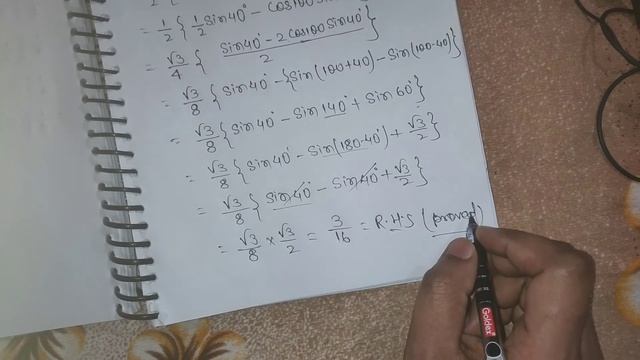 = 1/2 { 1/2 Sin40° - Cos100 Sin
= √3/4 { Sin40° - 2Cos100 Sin40° / 2 }
= √3/8 { Sin40° - {Sin(100+40) - Sin(100-40)}
= √3/8 { Sin40° - Sin 140° + Sin 60° }
= √3/8 { Sin40° - Sin(180-40°) + √3/2 }
= √3/8 { Sin40° - Sin40° + √3/2 }
= √3/8 × √3/2 = 3/16 = R.H.S (proved)
Golder